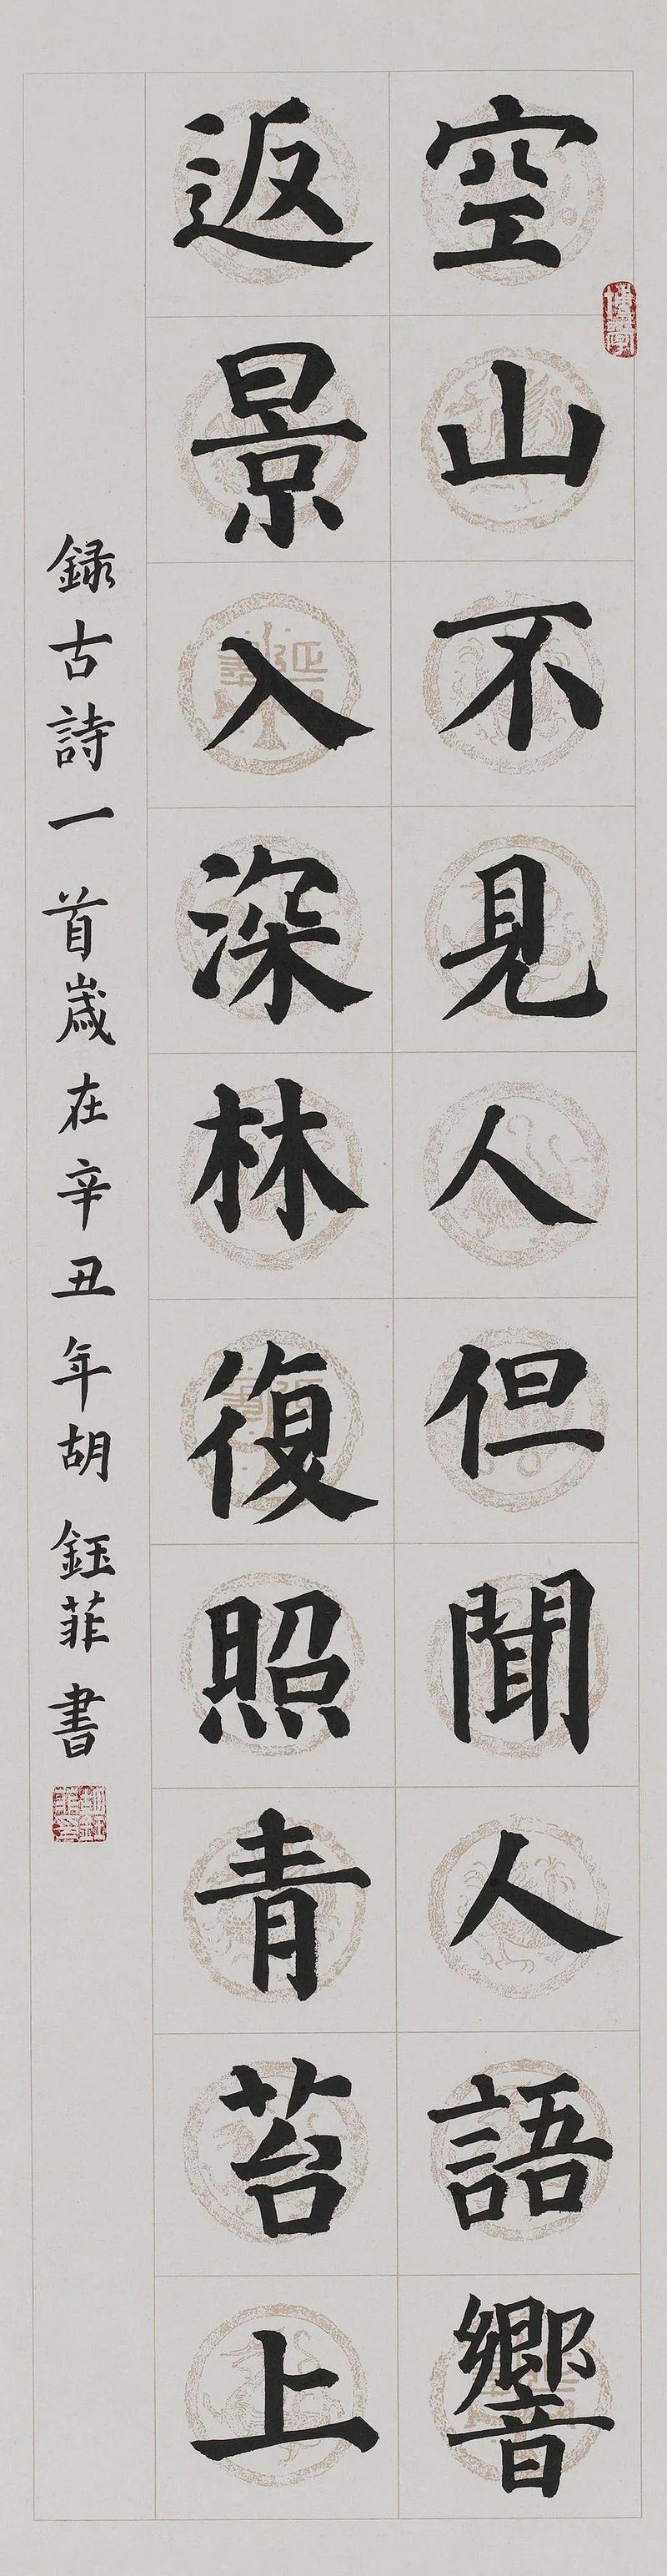 空山不見人但聞人語響
返景入深林復照青苔上
録古詩一首歲在辛丑年胡鈺菲書